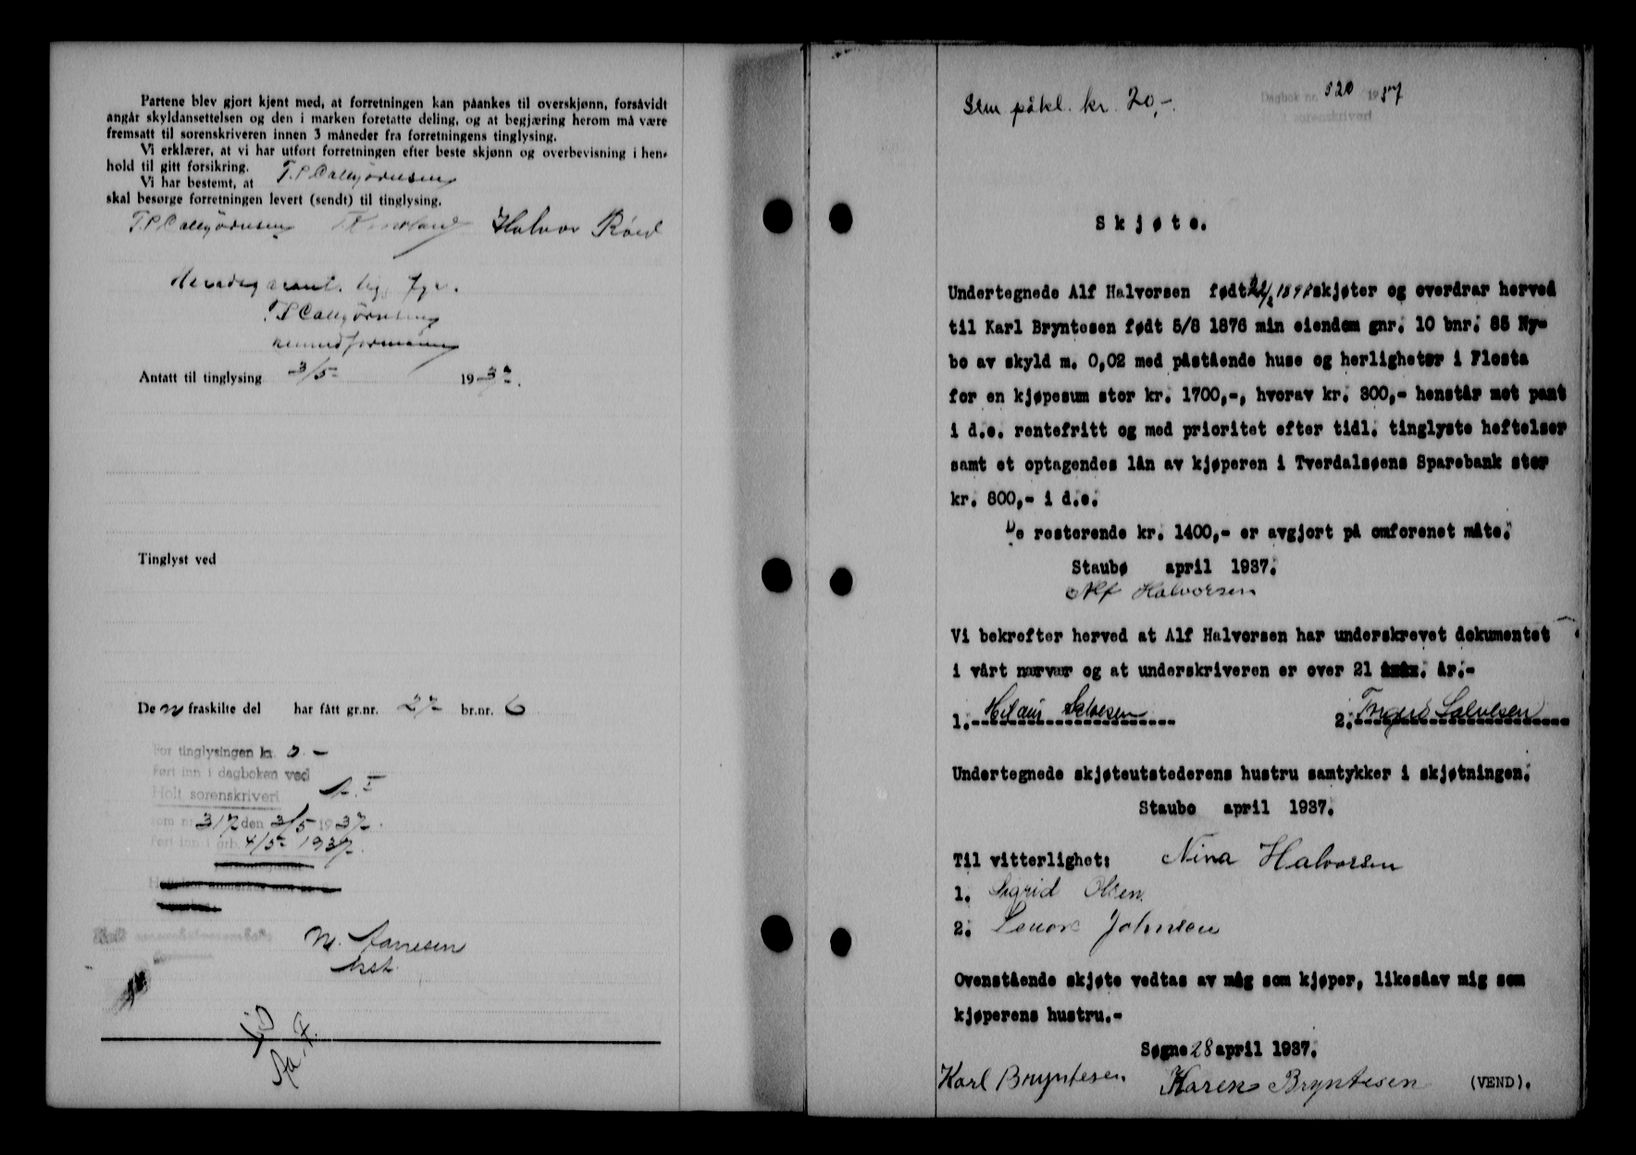 Partene blev gjort kjent med, at forretningen kan påankes til overskjønn, forsåvidt
angår skyldansettelsen og den i marken foretatte deling, og at begjæring herom må være
fremsatt til sorenskriveren innen 3 måneder fra forretningens tinglysing.
Vi erklærer, at vi har utført forretningen efter beste skjønn og overbevisning i hen-
hold til gitt forsikring.
Vi har bestemt, at
skal besørge forretningen levert (sendt) til tinglysing.
Halvor Røed
Antatt til tinglysing 3/5 1937.
Tinglyst ved
Den fraskilte del har fått gr.nr. 27 br.nr. 6
For tinglysingen kr.
Ført inn i dagboken ved
Holt sorenskriveri
som nr. 317 den 3/5 1937.
Ført inn i grb. 4/5 1937.
Stm påkl. kr. 20,-.
Dagbok nr. 520 1937
sorenskriveri
Skjøte.
Undertegnede Alf Halvorsen født skjøter og overdrar herved
til Karl Bryntesen født 5/8 1876 min eiendom gnr. 10 bnr. 85 Ny-
bo av skyld m. 0,02 med påstående huse og herligheter i Flosta
for en kjøpesum stor kr. 1700,-, hvorav kr. 300,- henstår mot pant
i d.e. rentefritt og med prioritet efter tidl. tinglyste heftelser
samt et optagendes lån av kjøperen i Tverdalsøens Sparebank stor
kr. 800,- i d.e.
De resterende kr. 1400,- er avgjort på omforenet måte.
Staubø april 1937.
Alf Halvorsen
Vi bekrefter herved at Alf Halvorsen har underskrevet dokumentet
i vårt nærvær og at underskriveren er over 21 år.-
1. Salvesen 2. Salvesen
Undertegnede skjøteutstederens hustru samtykker i skjøtningen.
Staubo april 1937.
Til vitterlighet: Nina Halvorsen
1. Sigrid Olsen.
2. Johnsen
Ovenstående skjøte vedtas av mig som kjøper, likesåav mig som
kjøperens hustru.-
Søgne 28 april 1937.
Karl Bryntesen Karen Bryntesen (VEND).